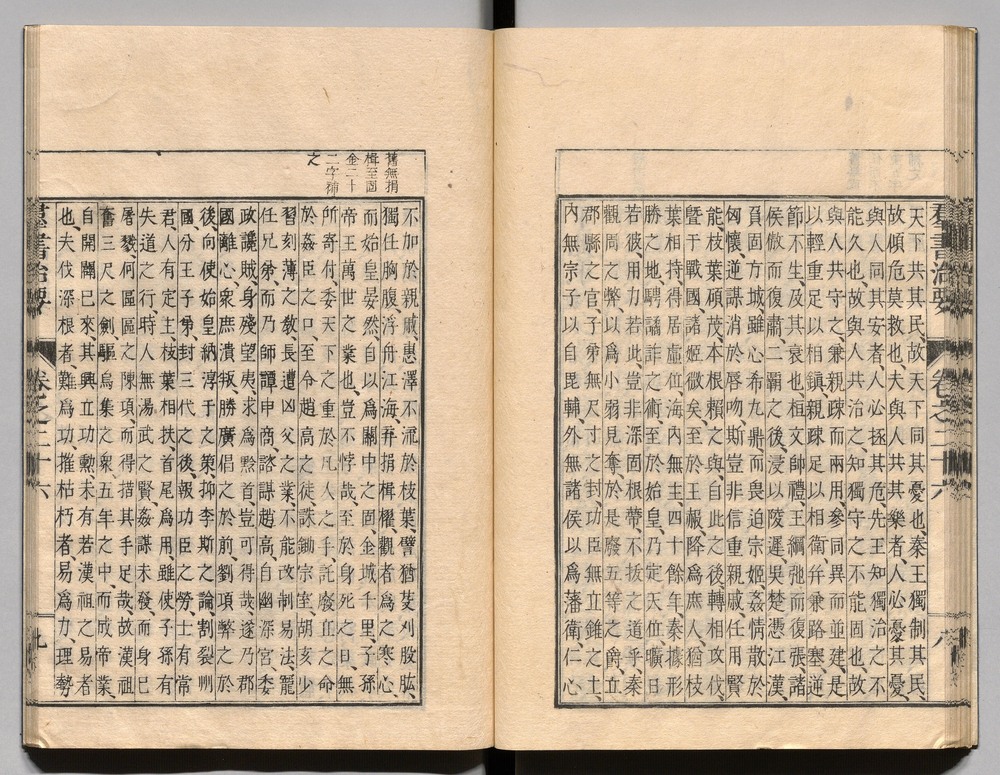 群書治要　卷之二十六　八
天下共其民、故天下同其憂也、秦王獨制其民、
故傾危莫救也、夫與人共其樂者、人必憂其憂、
與人同其安者、人必拯其危、先王知獨治之不
能久也、故與人共治之、知獨守之不能固也、故
與人共守之、兼親疎而兩用、參同異而並建、是
以輕重足以相鎮、親疎足以相衛、幷兼路塞、逆
節不生、及其衰也、桓文師禮、王綱弛而復張、諸
侯傲而復肅、二霸之後、浸以陵遲、吳楚憑江漢、
負固方城、雖心希九鼎、而畏迫宗姬、姦情散於
匈懷、逆謀消於脣吻、斯豈非信重親戚、任用賢
能、枝葉碩茂、本根賴之與、自此之後、轉相攻伐、
曁于戰國、諸姬微矣、至於王赧、降爲庶人、猶枝
葉相持、得居虛位、海內無主、四十餘年、秦據形
勝之地、騁譎詐之術、至於始皇、乃定天位、曠日
若彼、用力若此、豈非深固根蔕、不拔之道乎、秦
觀周之弊、以爲小弱見奪、於是廢五等之爵、立
郡縣之官、子弟無尺寸之封、功臣無立錐之土、
內無宗子以自毘輔、外無諸侯以爲藩衛、仁心
舊無捐
楫至固
金二十
二字補
之
不加於親戚、惠澤不流於枝葉、譬猶芟刈股肱、
獨任胸腹、浮舟江海、捐楫櫂、觀者爲之寒心、
而始皇晏然自以爲關中之固、金城千里、子孫
帝王萬世之業也、豈不悖哉、至於身死之日、無
所寄付、委天下之重於凡人之手、託廢立之命
於姦臣之口、至令趙高之徒誅鋤宗室、胡亥少
習刻薄之敎、長遭凶父之業、不能改制易法、寵
任兄弟、而乃師譚申商、諮謀趙高、自幽深宮、委
政讒賊、身殘望夷、求爲黔首、豈可得哉、遂乃郡
國離心、衆庶潰叛、勝廣倡之於前、劉項弊之於
後、向使始皇納淳于之策、抑李斯之論、割裂州
國、分王子弟、封三代之後、報功臣之勞、士有常
君、人有定主、枝葉相扶、首尾爲用、雖使子孫有
失道之行、時人無湯武之賢、姦謀未發、而身已
屠戮、何區區之陳項、而得措其手足哉、故漢祖
奮三尺之劍、驅烏集之衆、五年之中、而成帝業、
自開闢已來、其興立功勳、未有若漢祖之易者
也、夫伐深根者、難爲功、摧枯朽者、易爲力、理勢
群書治要　卷之二十六　九